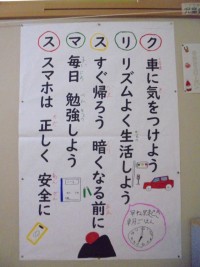 クリスマス
車に気をつけよう
リズムよく生活しよう
すぐ帰ろう 暗くなる前に
毎日 勉強しよう
スマホは 正しく 安全に